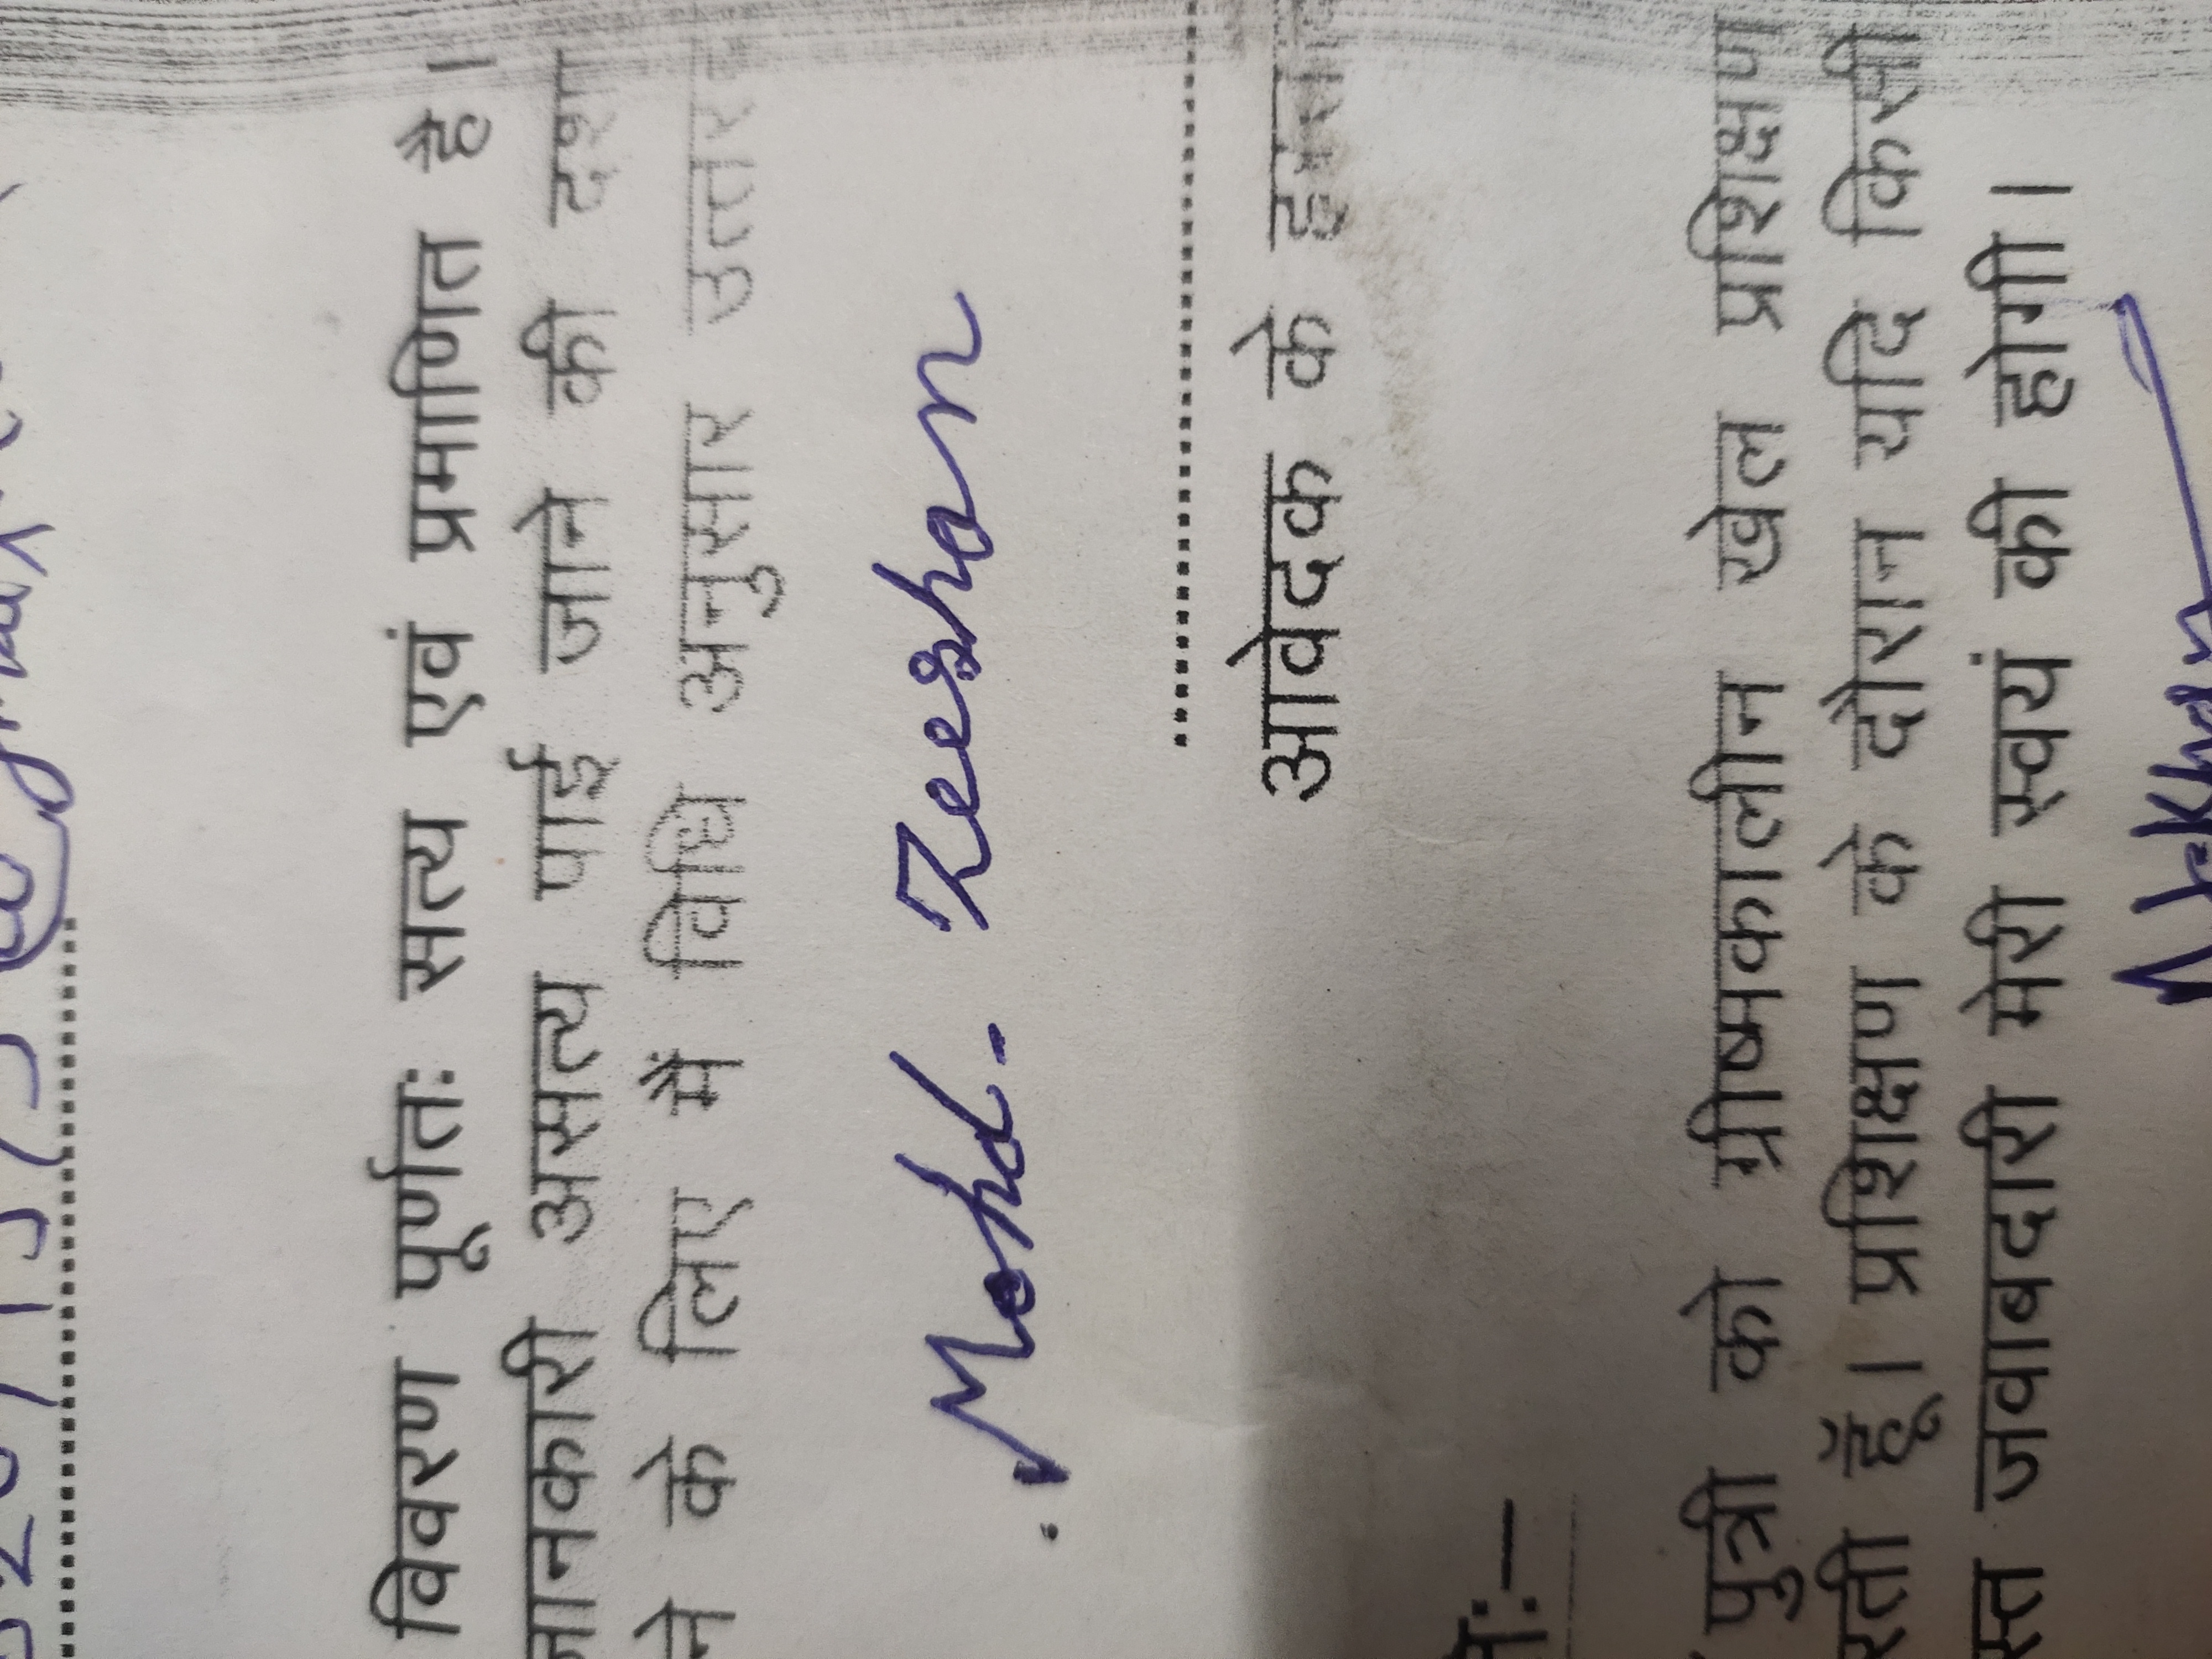 विवरण पूर्णतः सत्य एवं प्रमाणित है।
जानकारी असत्य पाई जाने की दशा
ने के लिए मैं विधि अनुसार उत्तर
Mohd. Zeeshan
आवेदक के
पुत्री को ग्रीष्मकालीन खेल प्रशिक्षण
हूँ। प्रशिक्षण के दौरान यदि किसी
जवाबदारी मेरी स्वयं की होगी।